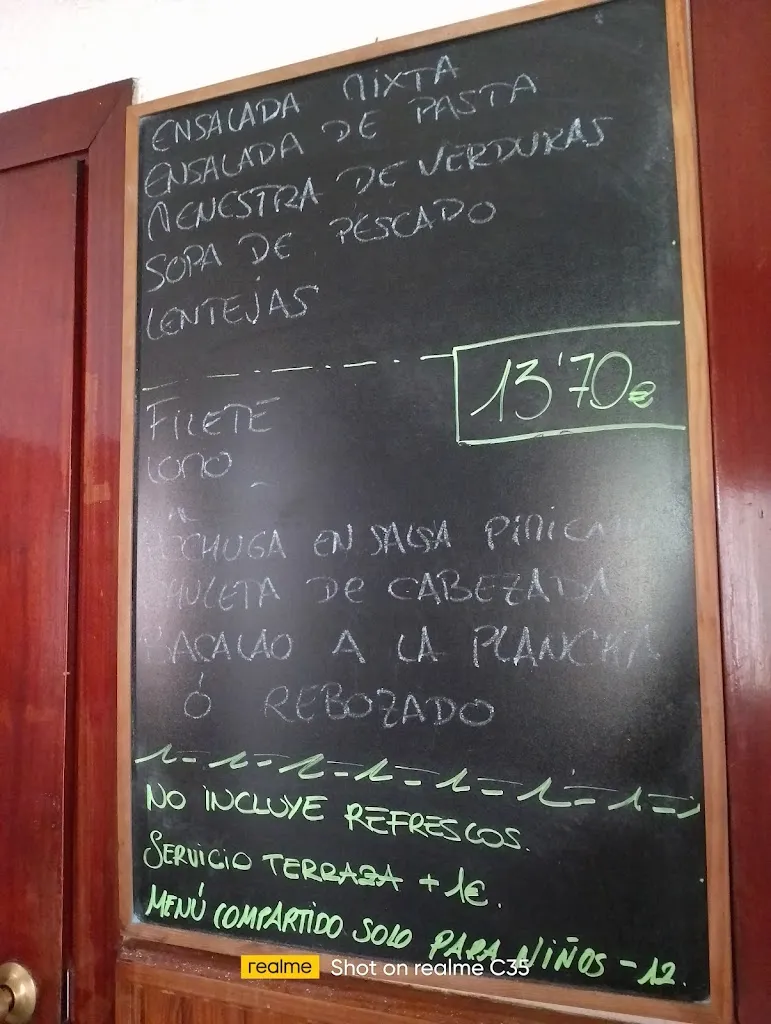 ENSALADA MIXTA
ENSALADA DE PASTA
MENESTRA DE VERDURAS
SOPA DE PESCADO
LENTEJAS
13'70€
FILETE
LOMO
PECHUGA EN SALSA
CHULETA DE CABEZADA
BACALAO A LA PLANCHA
Ó REBOZADO
NO INCLUYE REFRESCOS.
SERVICIO TERRAZA +1€.
MENÚ COMPARTIDO SOLO PARA NIÑOS -12.
realme Shot on realme C35